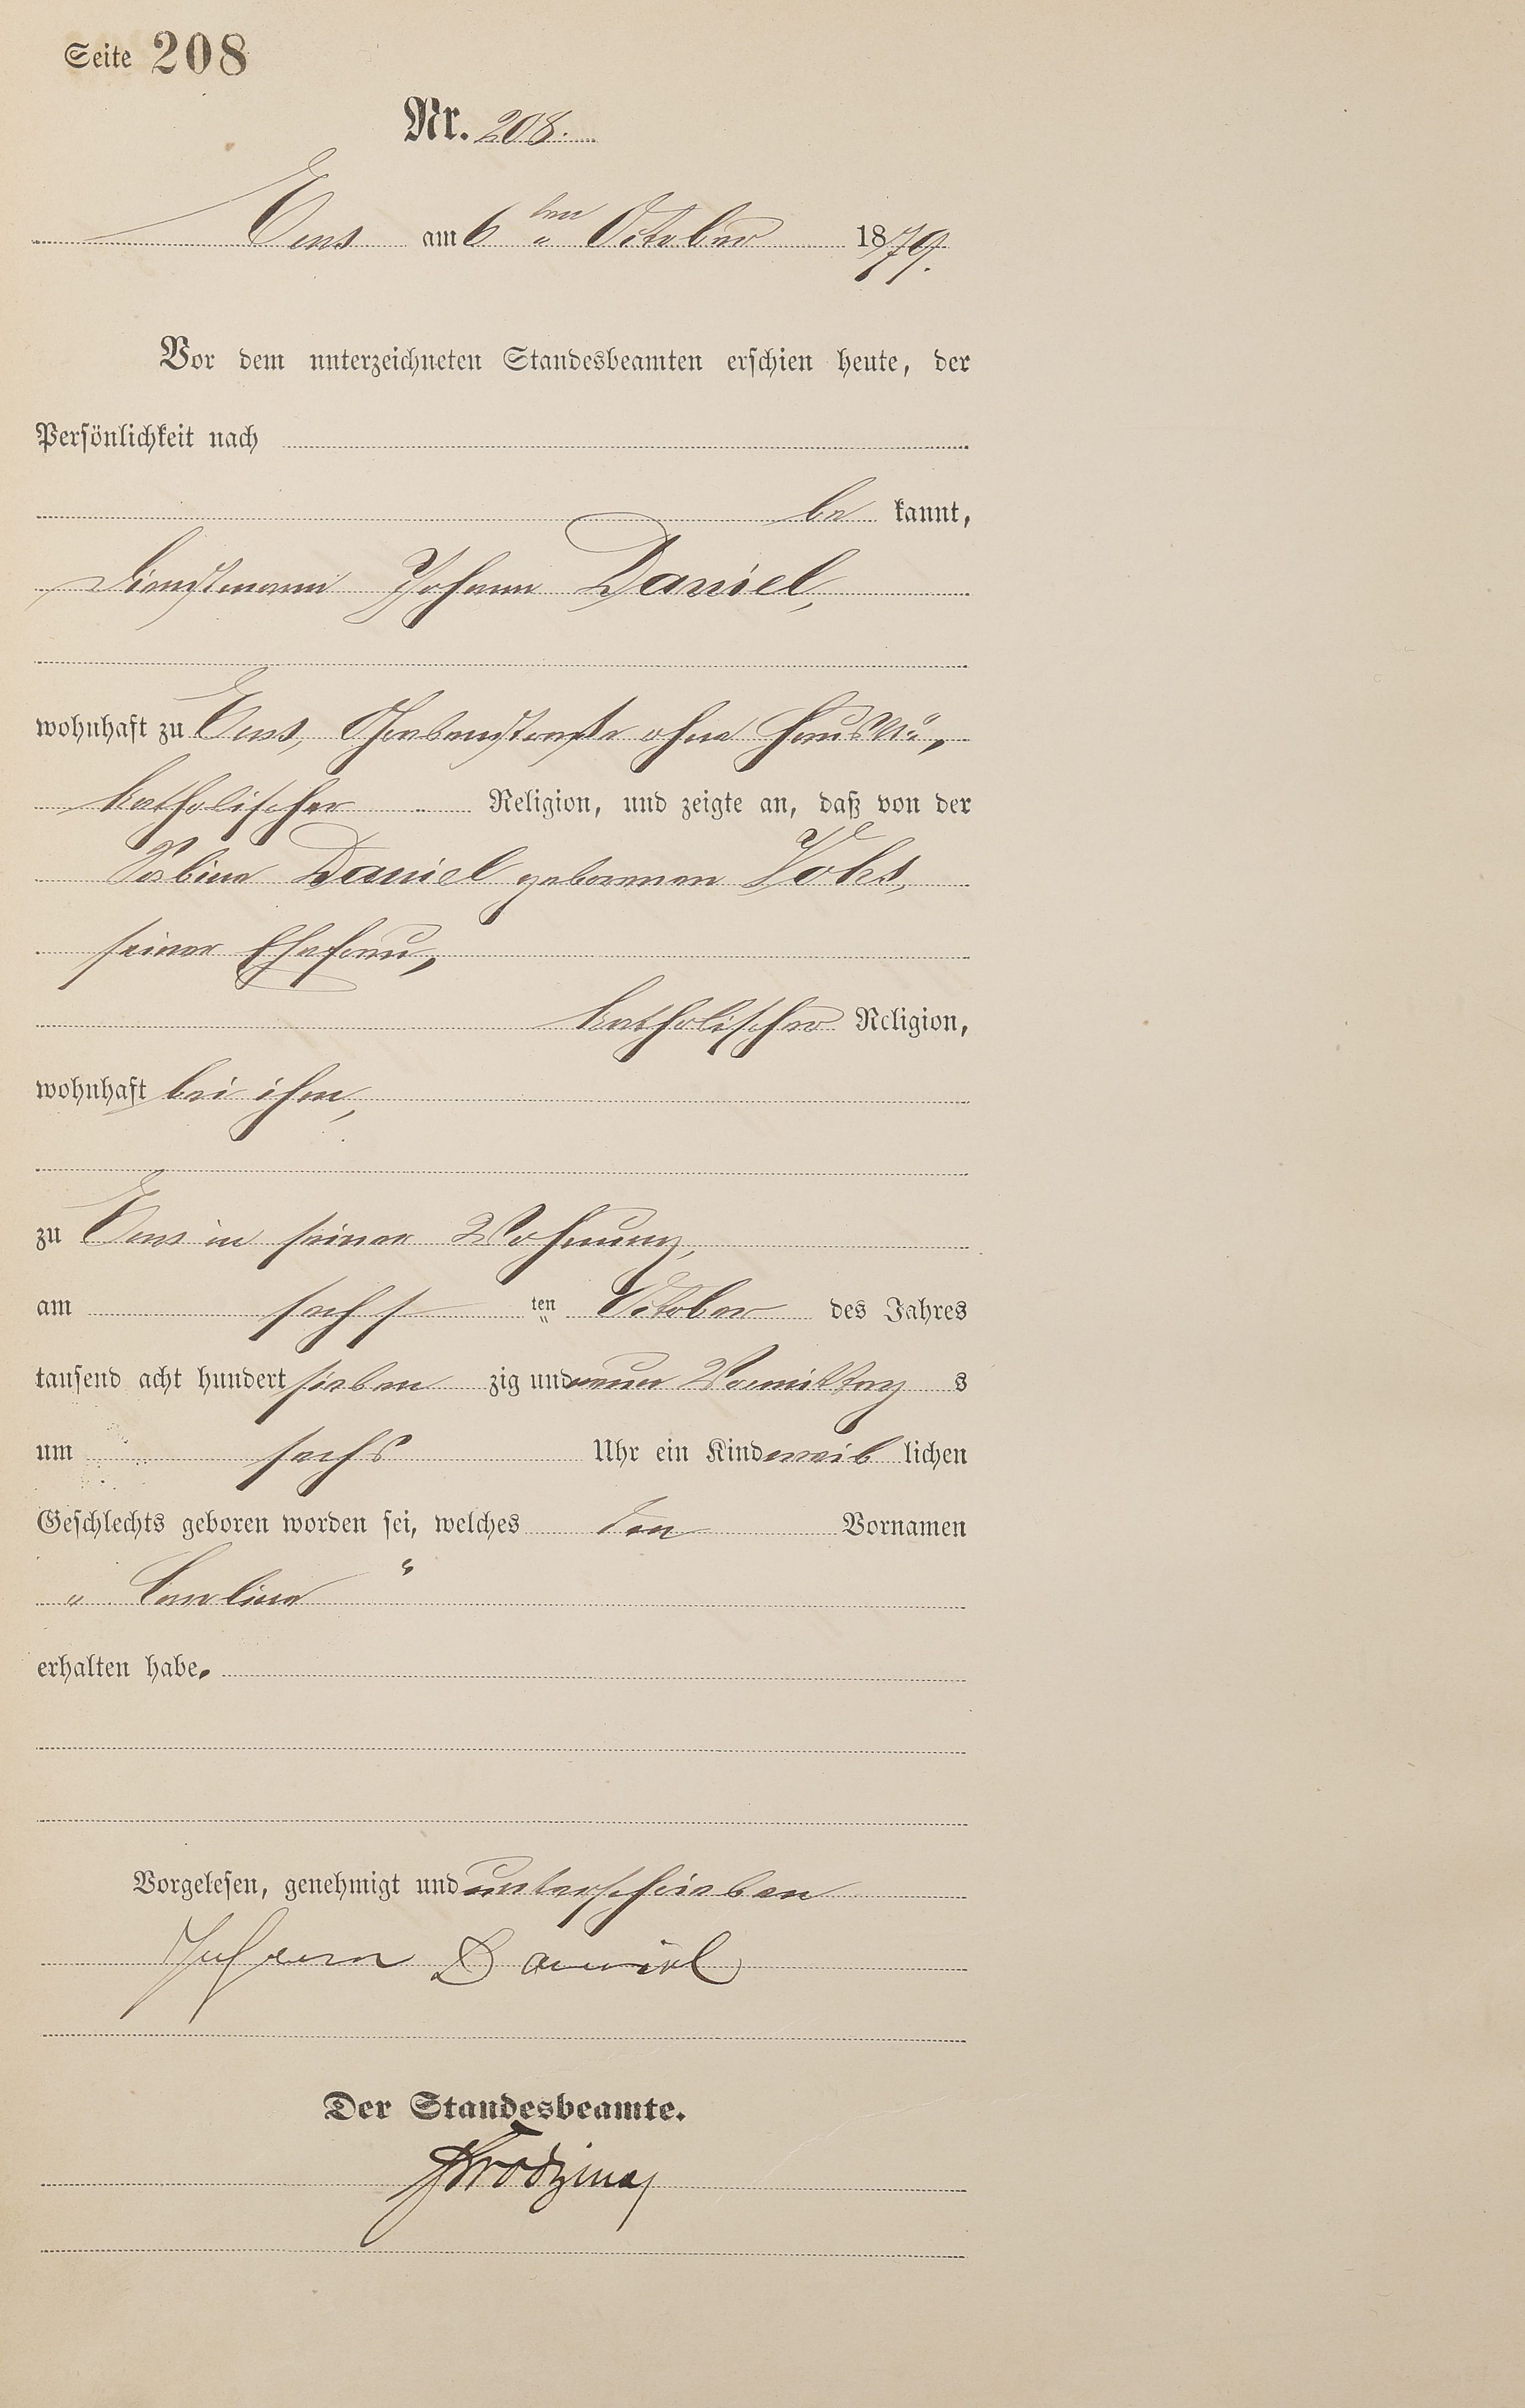 Seite 208
Nr. 208.
Ems am 6ten October 1879.
Vor dem unterzeichneten Standesbeamten erschien heute, der
Persönlichkeit nach
be kannt,
Dienstmann Johann Daniel,
wohnhaft zu Ems, ohne Haus No,
katholischer Religion, und zeigte an, daß von der
Sabina Daniel geborenen Vohs,
seiner Ehefrau,
katholischer Religion,
wohnhaft bei ihm,
zu Ems in seiner Wohnung,
am sechs ten October des Jahres
tausend acht hundert sieben zig und neun Vormittag s
um sechs Uhr ein Kind weib lichen
Geschlechts geboren worden sei, welches den Vornamen
"Carolina"
erhalten habe.
Vorgelesen, genehmigt und unterschrieben
Johann Daniel
Der Standesbeamte.